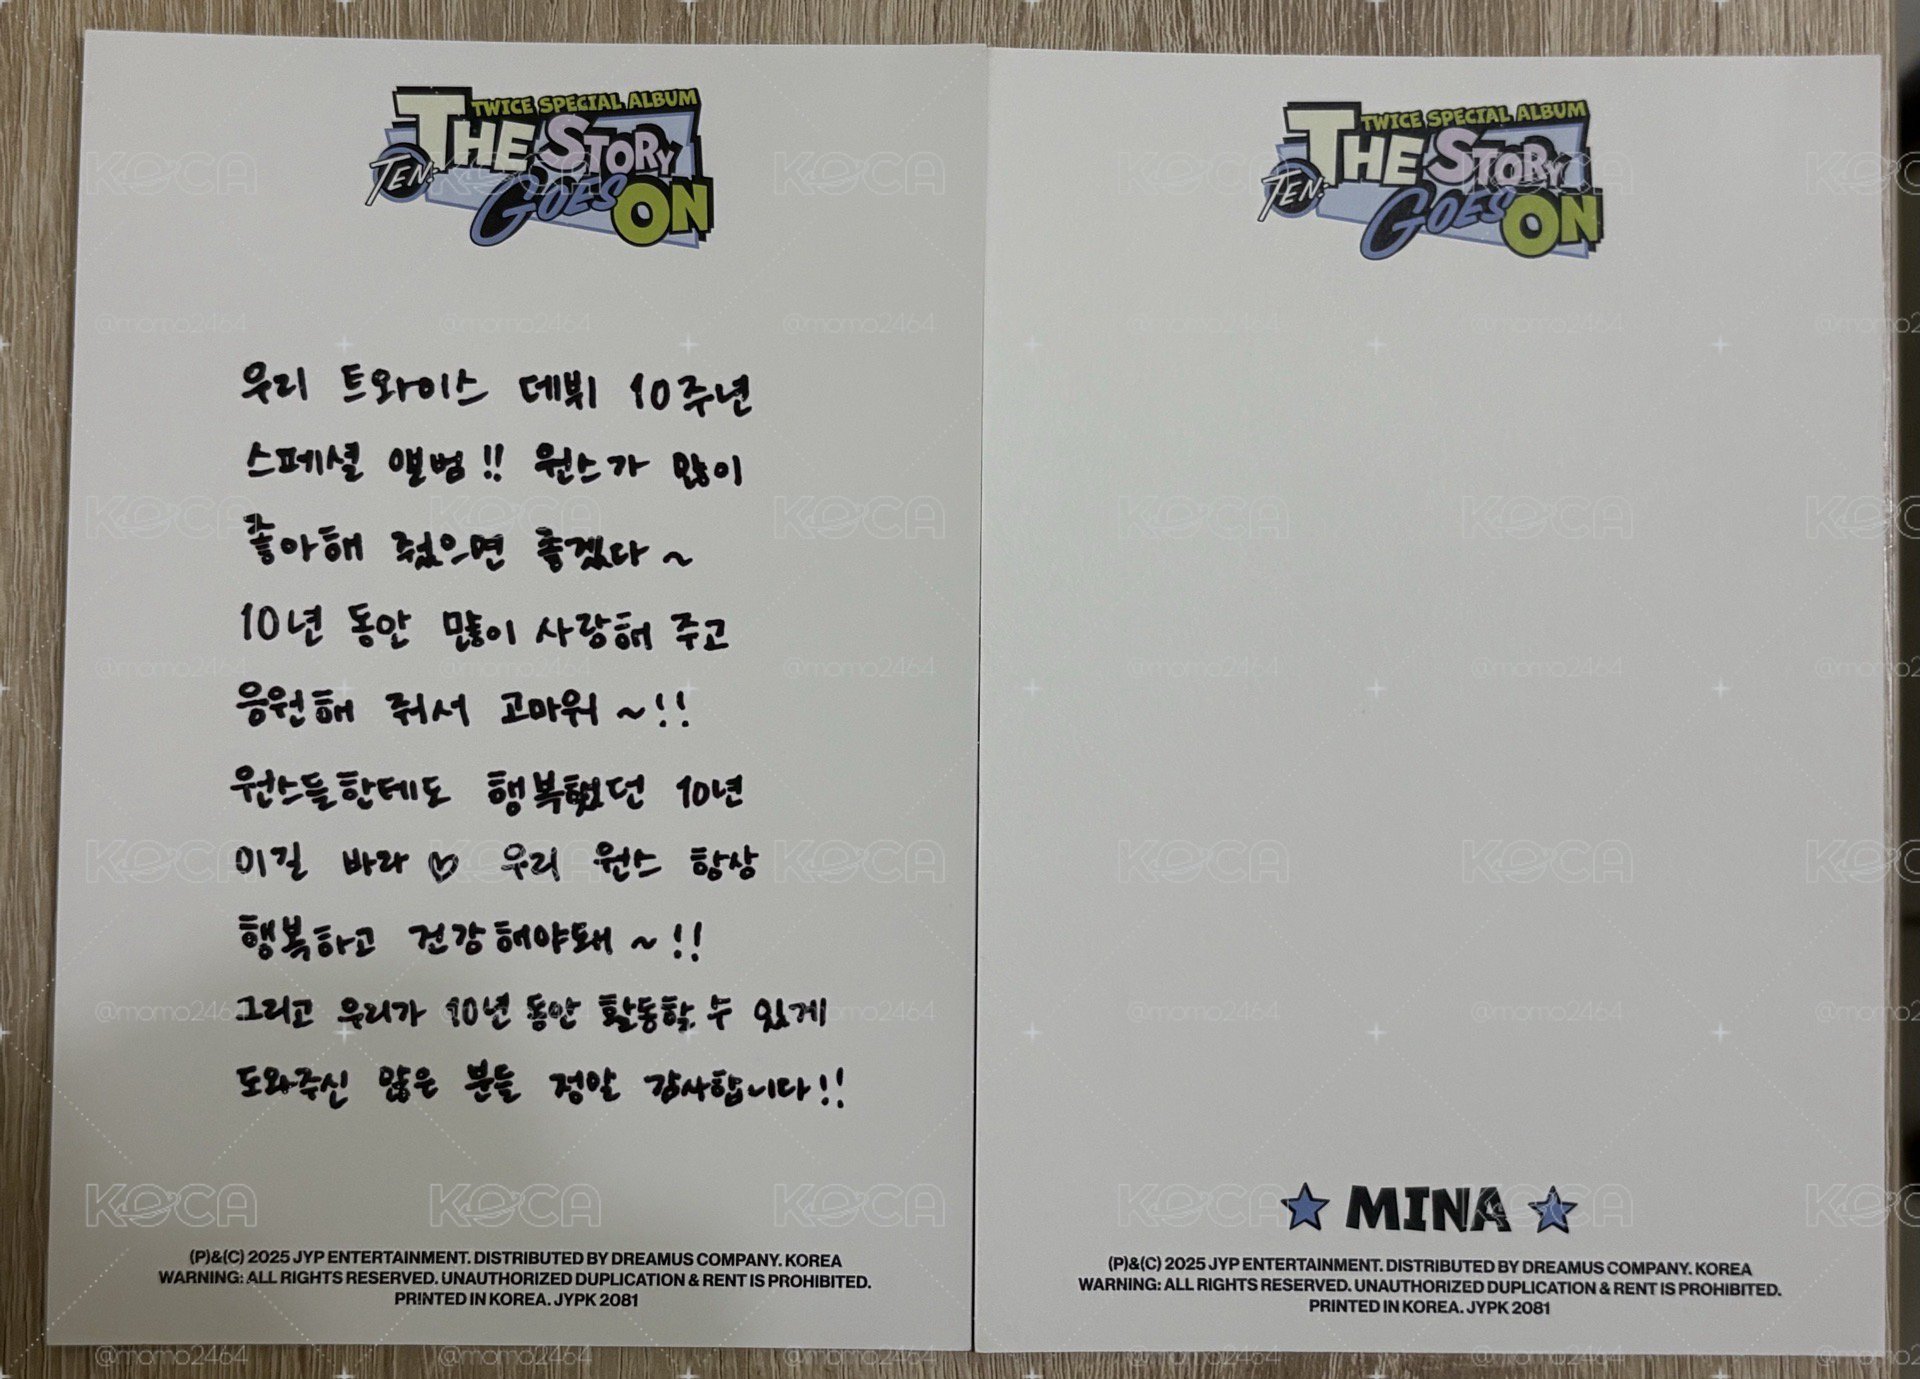 TWICE SPECIAL ALBUM
TEN: THE STORY
GOES ON
우리 트와이스 데뷔 10주년
스페셜 앨범!! 원스가 많이
좋아해 줬으면 좋겠다~
10년 동안 많이 사랑해 주고
응원해 줘서 고마워~!!
원스들한테도 행복했던 10년
이길 바라♡ 우리 원스 항상
행복하고 건강해야돼~!!
그리고 우리가 10년 동안 활동할 수 있게
도와주신 많은 분들 정말 감사합니다!!
(P)&(C) 2025 JYP ENTERTAINMENT. DISTRIBUTED BY DREAMUS COMPANY. KOREA
WARNING: ALL RIGHTS RESERVED. UNAUTHORIZED DUPLICATION & RENT IS PROHIBITED.
PRINTED IN KOREA. JYPK 2081
TWICE SPECIAL ALBUM
TEN: THE STORY
GOES ON
MINA
(P)&(C) 2025 JYP ENTERTAINMENT. DISTRIBUTED BY DREAMUS COMPANY. KOREA
WARNING: ALL RIGHTS RESERVED. UNAUTHORIZED DUPLICATION & RENT IS PROHIBITED.
PRINTED IN KOREA. JYPK 2081
KOCA
@momo2464